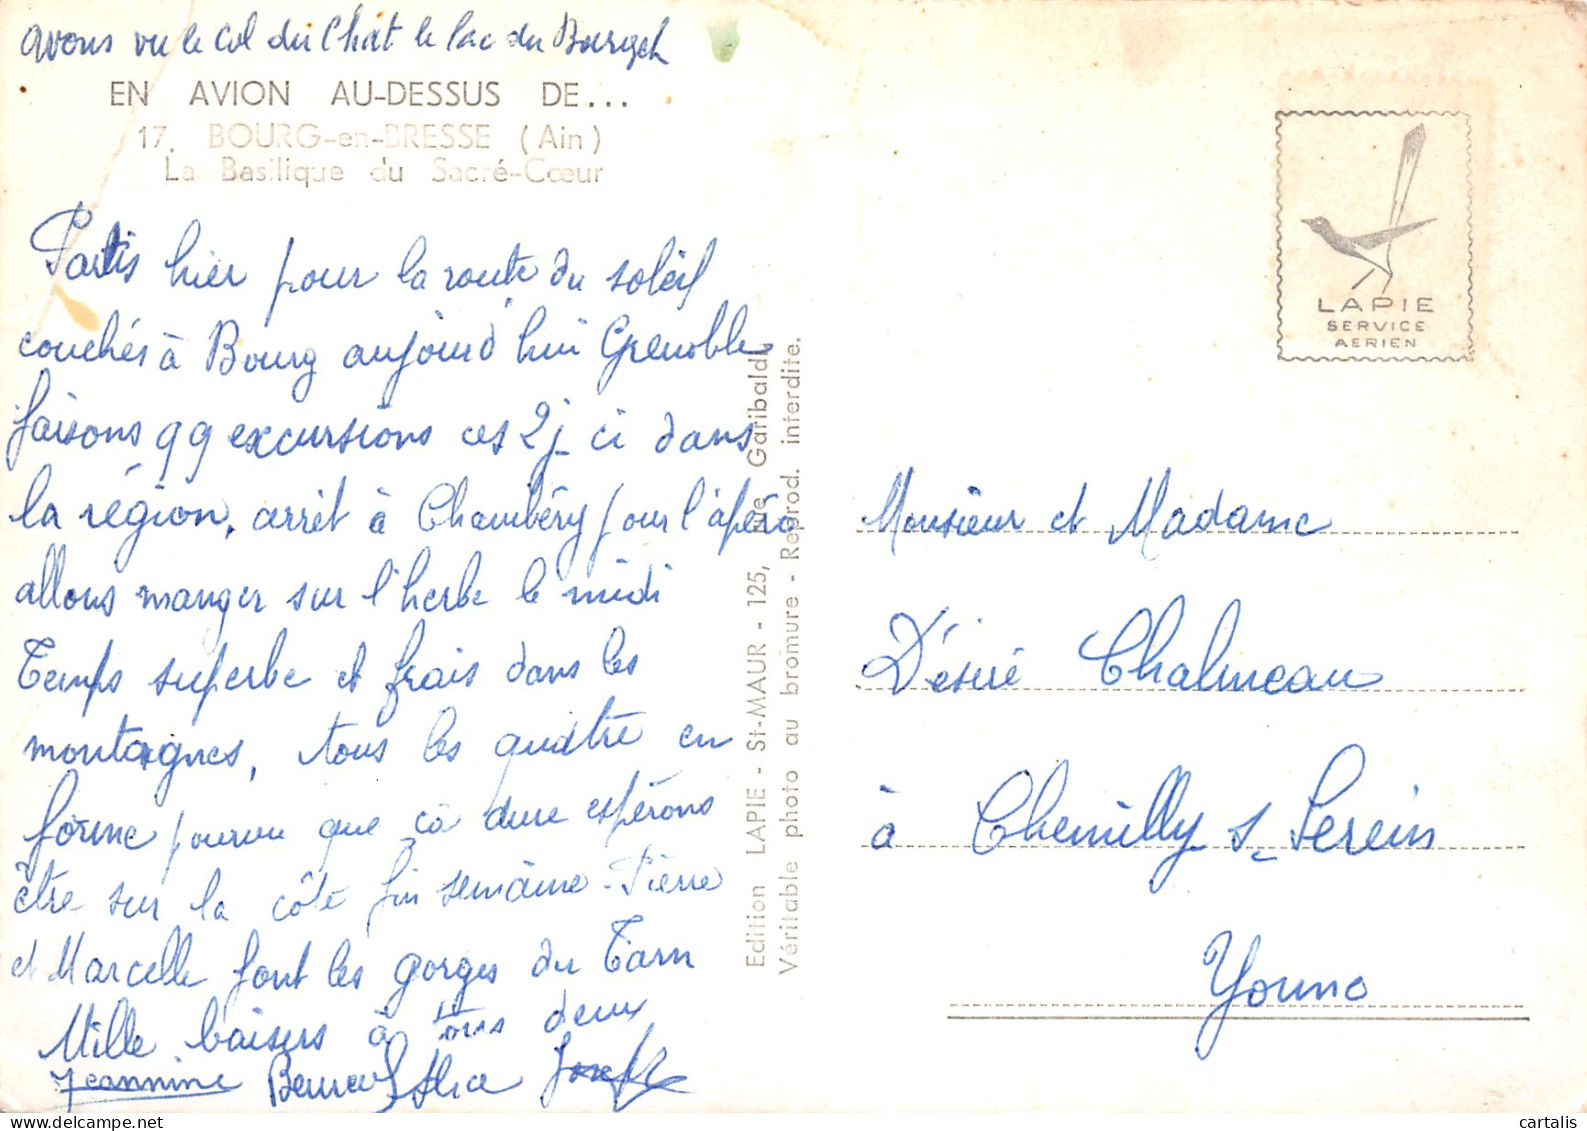 avons vu le Col du Chat le lac du Bourget
EN AVION AU-DESSUS DE...
17. BOURG-en-BRESSE (Ain)
La Basilique du Sacré-Cœur
Partis hier pour la route du soleil
couchés à Bourg aujourd'hui Grenoble
faisons qq excursions ces 2 j. ci dans
la région, arrêt à Chambéry pour l'apéro
allons manger sur l'herbe le midi
Temps superbe et frais dans les
montagnes, tous les quatre en
forme pourvu que ça dure espérons
être sur la côte fin semaine - Pierre
et Marcelle font les gorges du Tarn
Mille baisers à tous deux
Jeannine Alice Joseph
Edition LAPIE - St-MAUR - 125, rue Garibaldi
Véritable photo au bromure - Reprod. interdite.
LAPIE
SERVICE
AERIEN
Monsieur et Madame
Désiré Chalmeau
à Chemilly s. Serein
Yonne
cartalis